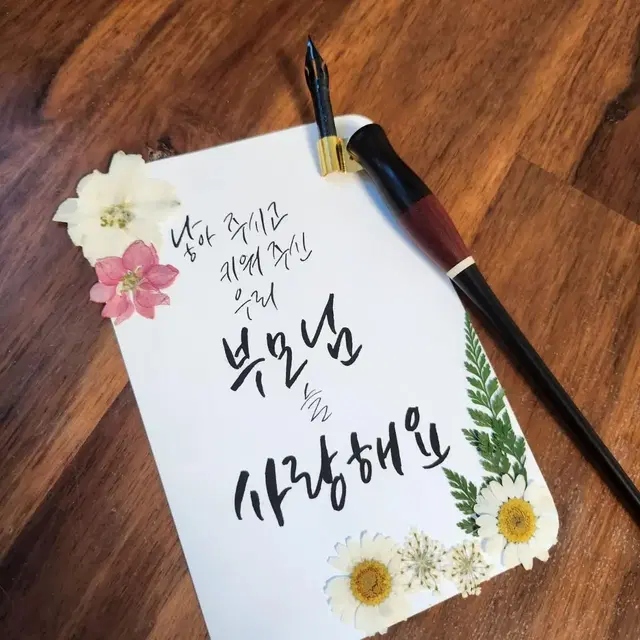 낳아 주시고
키워 주신
우리
부모님
늘
사랑해요